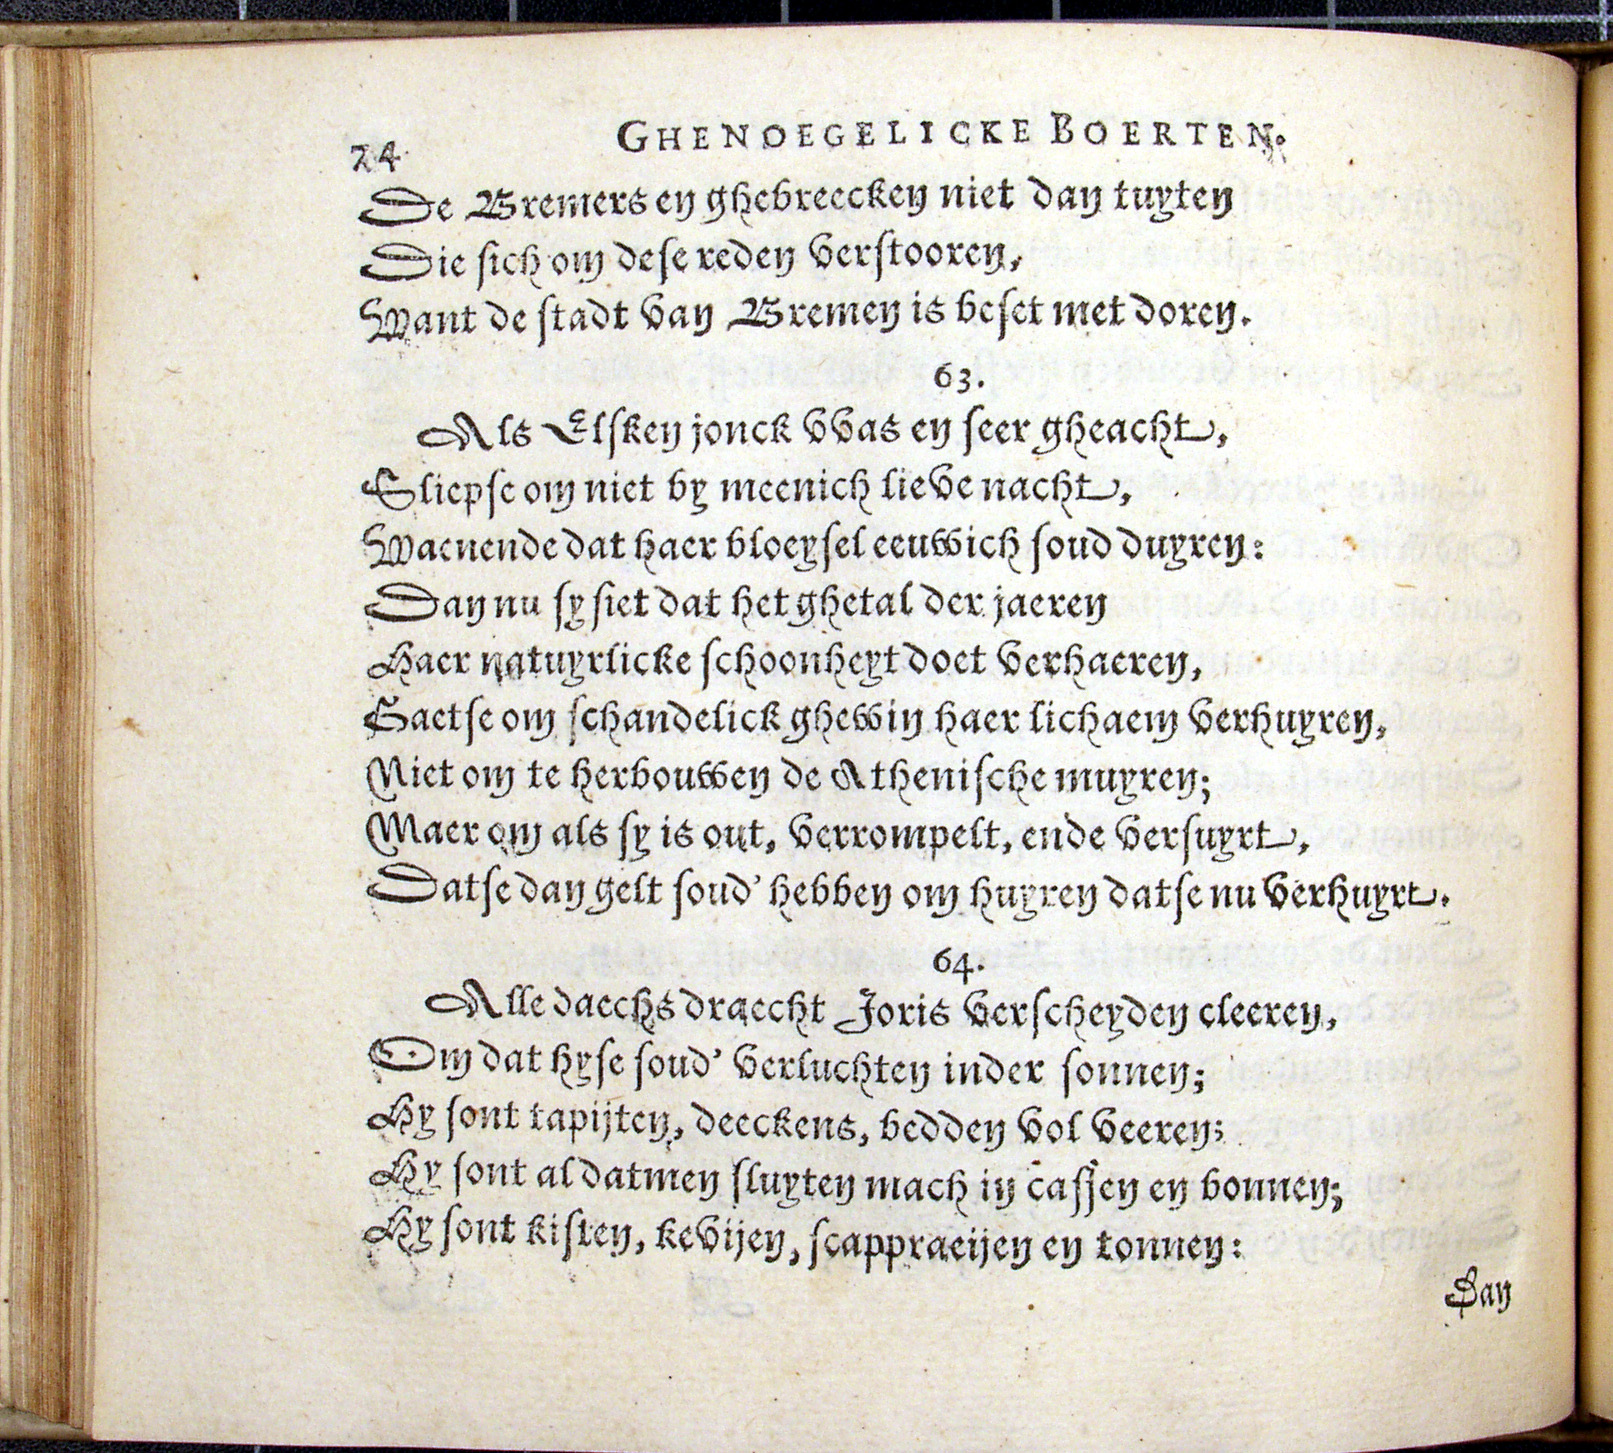 24 GHENOEGELICKE BOERTEN.
De Bremers en ghebreecken niet dan tuyten
Die sich om dese reden verstooren,
Want de stadt van Bremen is beset met doren.
63.
Als Elsken jonck vvas en seer gheacht,
Sliepse om niet by meenich lieve nacht,
Waenende dat haer bloeysel eeuwich soud duyren:
Dan nu sy siet dat het ghetal der jaeren
Haer natuyrlicke schoonheyt doet verhaeren,
Gaetse om schandelick ghewin haer lichaem verhuyren,
Niet om te herbouwen de Athenische muyren;
Maer om als sy is out, verrompelt, ende versuyrt,
Datse dan gelt soud' hebben om huyren datse nu verhuyrt.
64.
Alle daechs draecht Joris verscheyden cleeren,
Om dat hyse soud' verluchten inder sonnen;
Hy sont tapijten, deeckens, bedden vol veeren;
Hy sont al datmen sluyten mach in cassen en bonnen;
Hy sont kisten, kevijen, scappraeijen en tonnen:
Dan